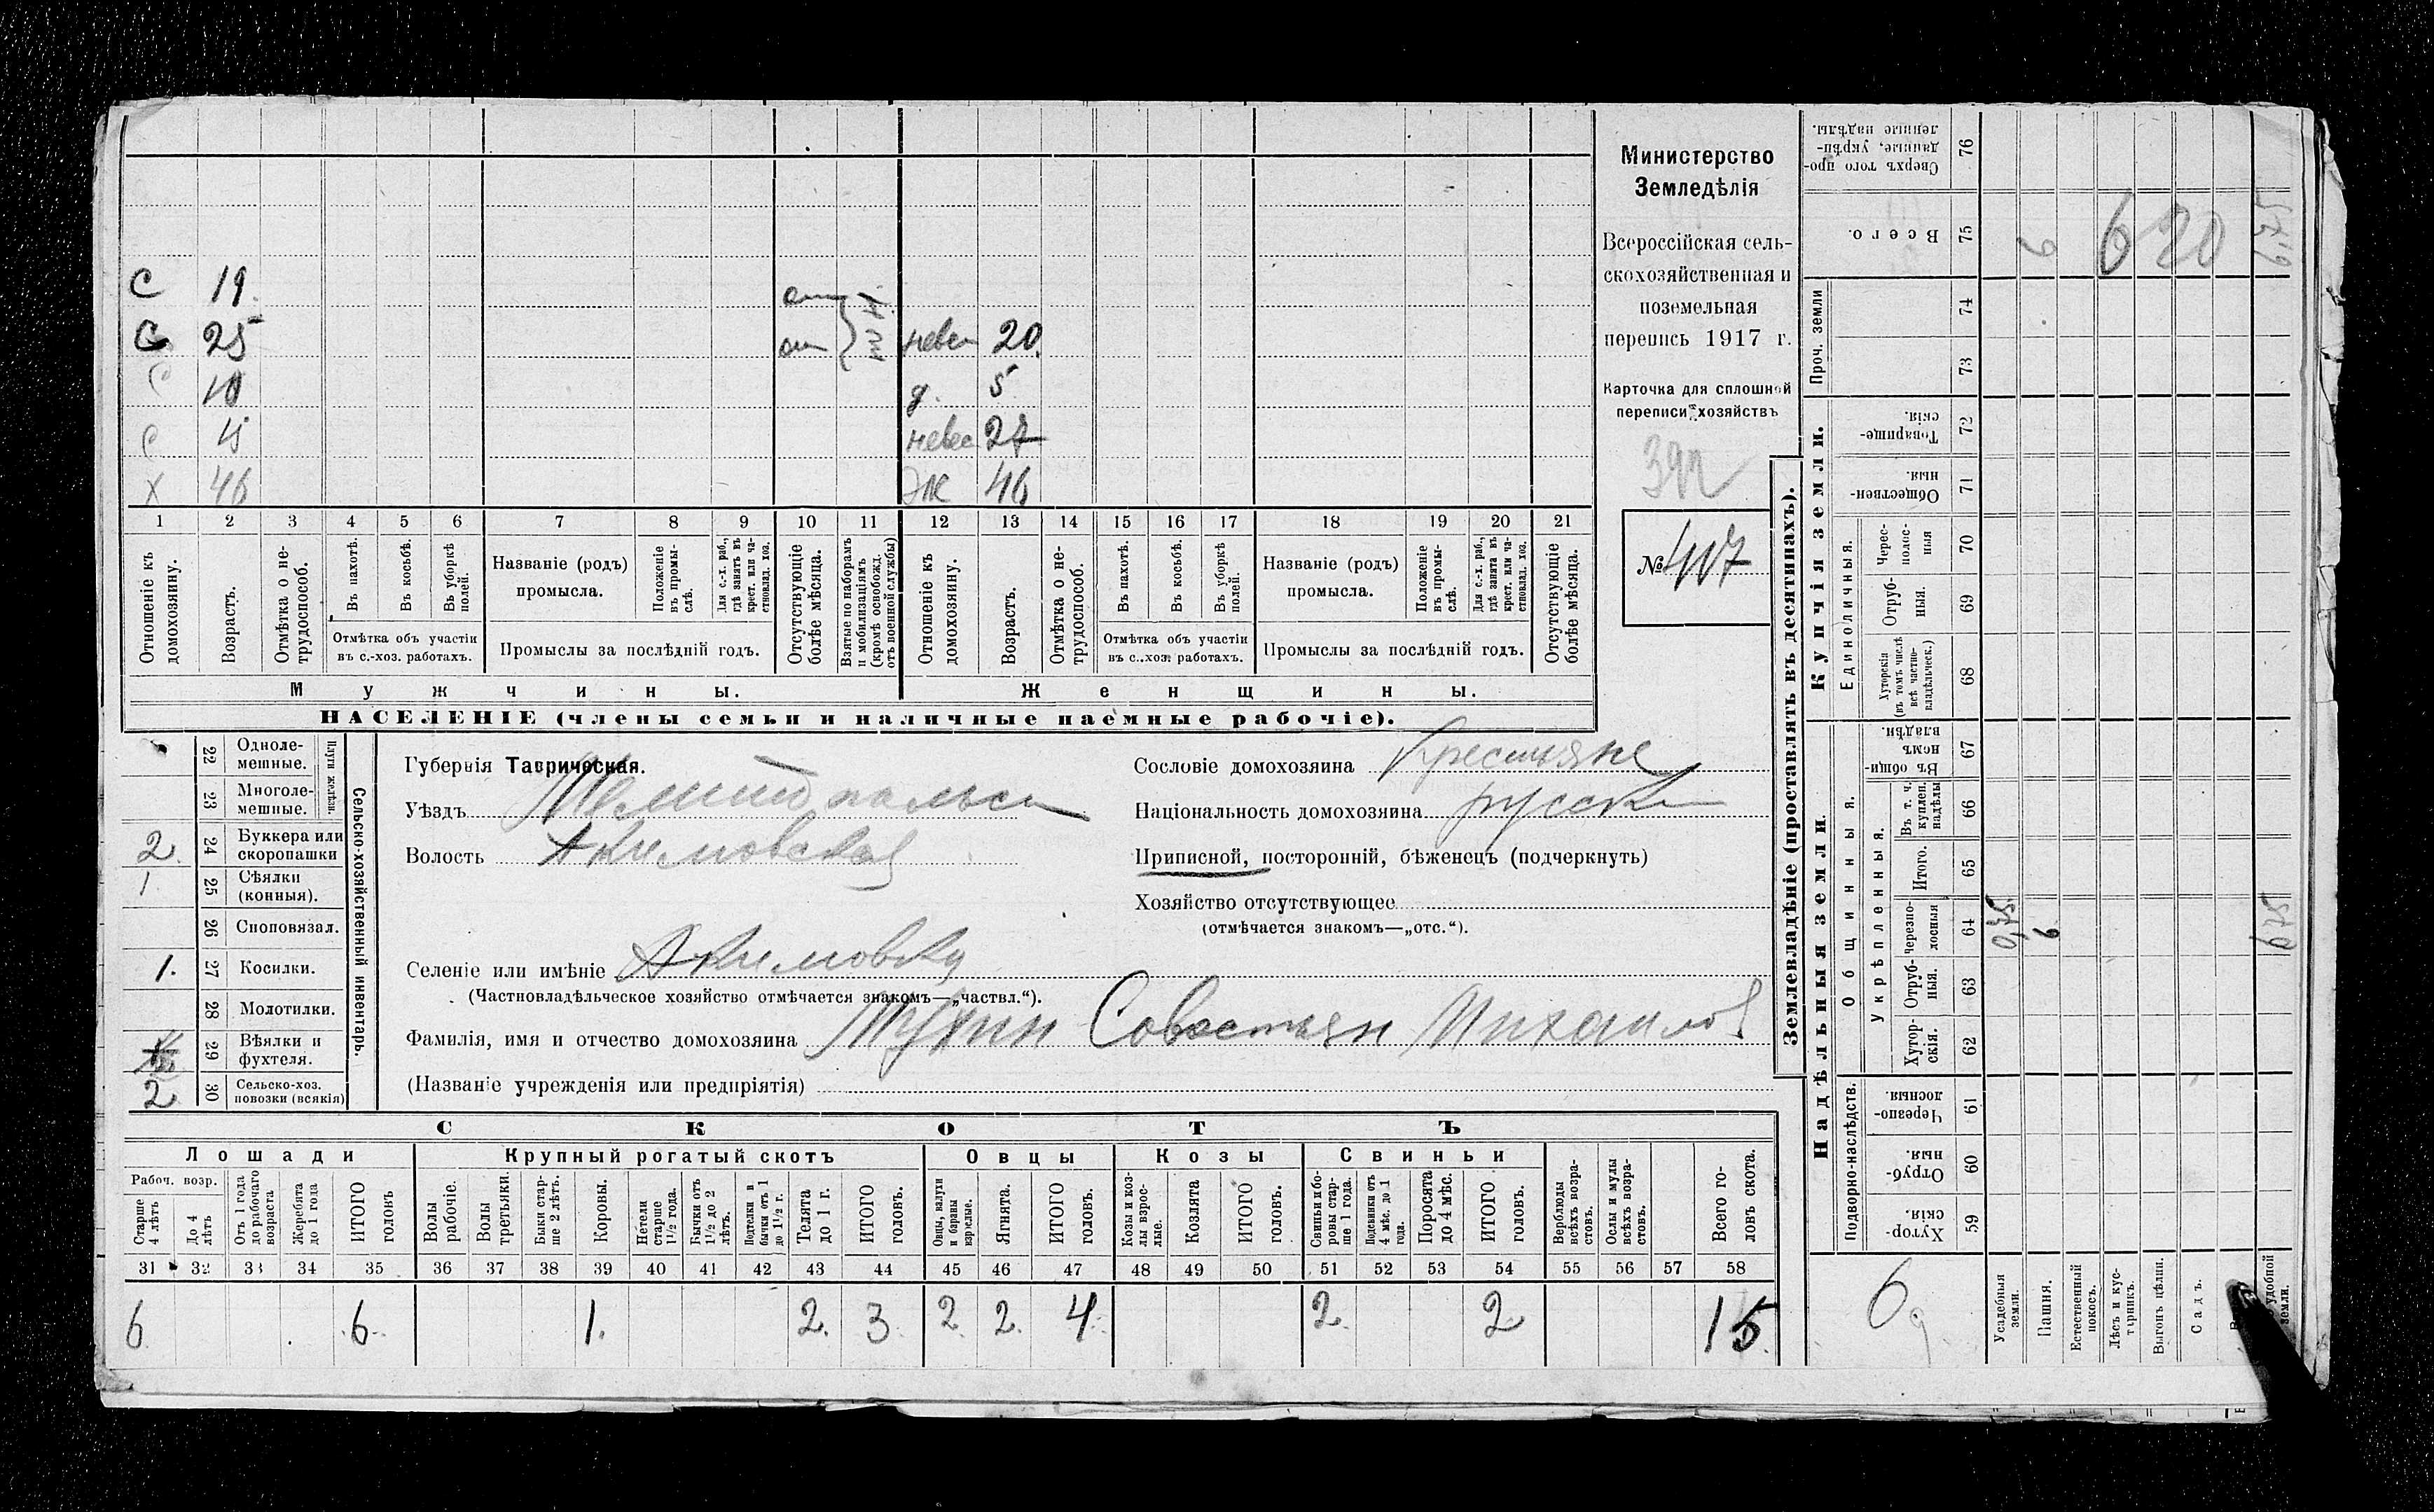 С 19
С 25 невес 20
С 10 д. 5
С 15 невес 27
Х 46 Ж 46
1 2 3 4 5 6 7 8 9 10 11 12 13 14 15 16 17 18 19 20 21
Отношеніе къ домохозяину.
Возрастъ.
Отмѣтка о нетрудоспособ.
Въ пахотѣ.
Въ косьбѣ.
Въ уборкѣ полей.
Отмѣтка объ участіи въ с.-хоз. работахъ.
Названіе (родъ) промысла.
Положеніе въ промыслѣ.
Для с.-х. раб., гдѣ занятъ въ крест. или частновлад. хоз.
Промыслы за послѣдній годъ.
Отсутствующіе болѣе мѣсяца.
Взятые по наборамъ и мобилизаціямъ (кромѣ освобожд. отъ военной службы)
Отношеніе къ домохозяину.
Возрастъ.
Отмѣтка о нетрудоспособ.
Въ пахотѣ.
Въ косьбѣ.
Въ уборкѣ полей.
Отмѣтка объ участіи въ с.-хоз. работахъ.
Названіе (родъ) промысла.
Положеніе въ промыслѣ.
Для с.-х. раб., гдѣ занята въ крест. или частновлад. хоз.
Промыслы за послѣдній годъ.
Отсутствующіе болѣе мѣсяца.
Мужчины. Женщины.
НАСЕЛЕНІЕ (члены семьи и наличные наемные рабочіе).
Министерство
Земледѣлія
Всероссійская сель-
скохозяйственная и
поземельная
перепись 1917 г.
Карточка для сплошной
переписи хозяйствъ
№ 407
Сельско-хозяйственный инвентарь.
Плуги желѣзн.
22 Одноле-
мешные.
23 Многоле-
мешные.
2 24 Буккера или
скоропашки
1 25 Сѣялки
(конныя).
26 Сноповязал.
1. 27 Косилки.
28 Молотилки.
29 Вѣялки и
фухтеля.
2 30 Сельско-хоз.
повозки (всякія)
Губернія Таврическая.
Уѣздъ Мелитопальск
Волость Акимовская
Селеніе или имѣніе Акимовка
(Частновладѣльческое хозяйство отмѣчается знакомъ—„частвл.“).
Фамилія, имя и отчество домохозяина Мухин Совостьян Михаилов
(Названіе учрежденія или предпріятія)
Сословіе домохозяина Крестьяне
Національность домохозяина русск
Приписной, посторонній, бѣженецъ (подчеркнуть)
Хозяйство отсутствующее
(отмѣчается знакомъ—„отс.“).
СКОТЪ
Лошади Крупный рогатый скотъ Овцы Козы Свиньи
Рабоч. возр.
Старше 4 лѣтъ
До 4 лѣтъ
Отъ 1 года до рабочаго возраста
Жеребята до 1 года
ИТОГО головъ
Волы рабочіе.
Волы третьяки.
Быки старше 2 лѣтъ.
Коровы.
Нетели старше 1½ года.
Бычки отъ 1½ до 2 лѣтъ.
Подтелки и бычки отъ 1 до 1½ г.
Телята до 1 г.
ИТОГО головъ.
Овцы, валухи и бараны взрослые.
Ягнята.
ИТОГО головъ.
Козы и козлы взрослые.
Козлята
ИТОГО головъ.
Свиньи и боровы старше 1 года.
Подсвинки отъ 4 мѣс. до 1 года.
Поросята до 4 мѣс.
ИТОГО головъ.
Верблюды всѣхъ возрастовъ.
Ослы и мулы всѣхъ возрастовъ.
Всего головъ скота.
31 32 33 34 35 36 37 38 39 40 41 42 43 44 45 46 47 48 49 50 51 52 53 54 55 56 57 58
6 6 1. 2. 3 2 2. 4 2 2 15
Землевладѣніе (проставлять въ десятинахъ).
Надѣльныя земли. Купчія земли. Проч. земли
Подворно-наслѣдств.
Общинныя.
Укрѣпленныя.
Единоличныя.
Сверхъ того проданные, укрѣпленные надѣлы. 76
Всего. 75
74
73
Товарищескія. 72
Общественныя. 71
Череcполосныя 70
Отрубныя. 69
Хуторскія (въ томъ числѣ всѣ частновладѣльческ.) 68
Въ общинномъ владѣн. 67
Въ т. ч. куплен. надѣлы 66
Итого. 65
Черезполосныя 64
Отрубныя. 63
Хуторскія. 62
Черезполосныя 61
Отрубныя. 60
Хуторскія. 59
6 620 6,75
0,75 6 6,75
6
Усадебныя земли.
Пашня.
Естественный покосъ.
Лѣсъ и кустарникъ.
Выгонъ цѣлин.
Садъ.
удобной земли.